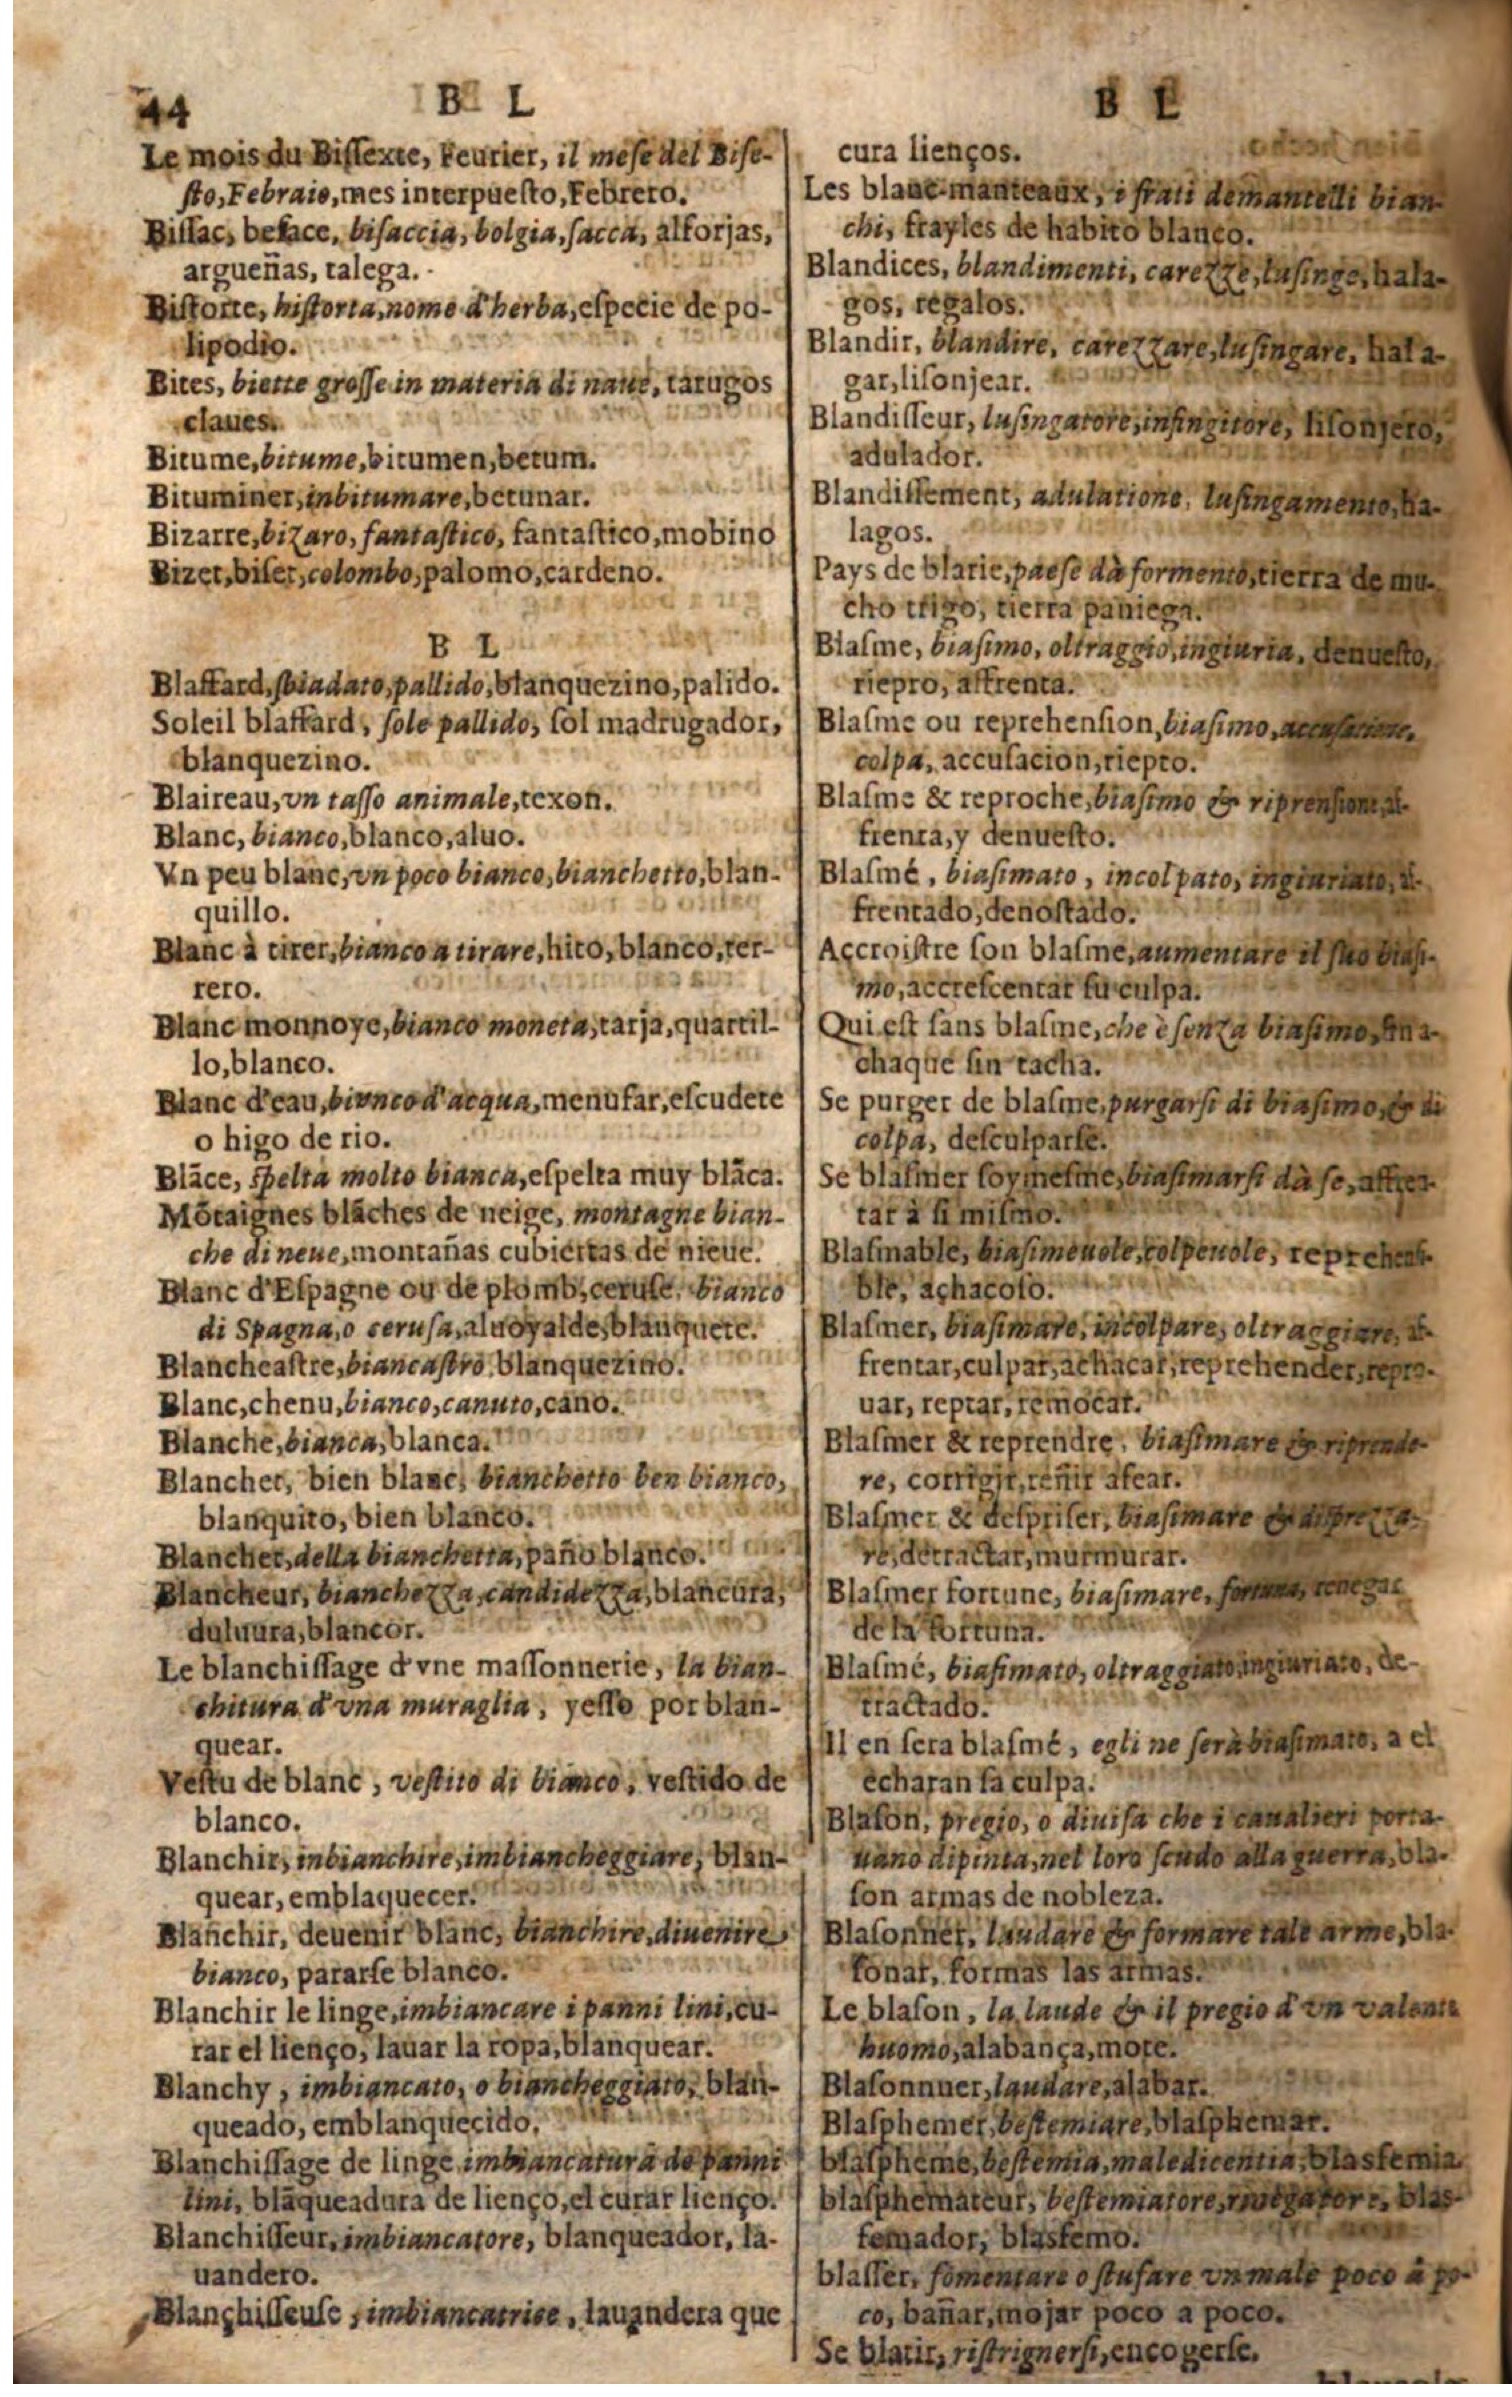 44
B L
Le mois du Biſſexte, Feurier, il meſe del Biſe-
ſto, Febraio, mes interpueſto, Febrero.
Biſſac, beſace, biſaccia, bolgia, ſacca, alforjas,
argueñas, talega.
Biſtorte, hiſtorta, nome d'herba, eſpecie de po-
lipodio.
Bites, biette groſſe in materia di naue, tarugos
claues.
Bitume, bitume, bitumen, betum.
Bituminer, inbitumare, betunar.
Bizarre, bizaro, fantaſtico, fantaſtico, mobino
Bizet, biſet, colombo, palomo, cardeno.
B L
Blaffard, sbiadato, pallido, blanquezino, palido.
Soleil blaffard, ſole pallido, ſol madrugador,
blanquezino.
Blaireau, vn taſſo animale, texon.
Blanc, bianco, blanco, aluo.
Vn peu blanc, vn poco bianco, bianchetto, blan-
quillo.
Blanc à tirer, bianco a tirare, hito, blanco, ter-
rero.
Blanc monnoye, bianco moneta, tarja, quartil-
lo, blanco.
Blanc d'eau, bivnco d'acqua, menufar, eſcudete
o higo de rio.
Blãce, ſpelta molto bianca, eſpelta muy blãca.
Mõtaignes blãches de neige, montagne bian-
che di neue, montañas cubiertas de nieue.
Blanc d'Eſpagne ou de plomb, ceruſe, bianco
di Spagna, o ceruſa, aluoyalde, blanquete.
Blancheaſtre, biancaſtro, blanquezino.
Blanc, chenu, bianco, canuto, cano.
Blanche, bianca, blanca.
Blanchet, bien blanc, bianchetto ben bianco,
blanquito, bien blanco.
Blanchet, della bianchetta, paño blanco.
Blancheur, bianchezza, candidezza, blancura,
duluura, blancor.
Le blanchiſſage d'vne maſſonnerie, la bian-
chitura d'vna muraglia, yeſſo por blan-
quear.
Veſtu de blanc, veſtito di bianco, veſtido de
blanco.
Blanchir, inbianchire, imbiancheggiare, blan-
quear, emblaquecer.
Blanchir, deuenir blanc, bianchire, diuenire
bianco, pararſe blanco.
Blanchir le linge, imbiancare i panni lini, cu-
rar el lienço, lauar la ropa, blanquear.
Blanchy, imbiancato, o biancheggiato, blan-
queado, emblanquecido.
Blanchiſſage de linge imbiancatura de panni
lini, blãqueadura de lienço, el curar lienço.
Blanchiſſeur, imbiancatore, blanqueador, la-
uandero.
Blançhiſſeuſe, imbiancatrice, lauandera que
B L
cura lienços.
Les blanc-manteaux, i frati demantelli bian-
chi, frayles de habito blanco.
Blandices, blandimenti, carezze, luſinge, hala-
gos, regalos.
Blandir, blandire, carezzare, luſingare, hala-
gar, liſonjear.
Blandiſſeur, luſingatore, infingitore, liſonjero,
adulador.
Blandiſſement, adulatione, luſingamento, ha-
lagos.
Pays de blarie, paeſe dà formento, tierra de mu-
cho trigo, tierra paniega.
Blaſme, biaſimo, oltraggio, ingiuria, denueſto,
riepro, affrenta.
Blaſme ou reprehenſion, biaſimo, accuſatione,
colpa, accuſacion, riepto.
Blaſme & reproche, biaſimo & riprenſione, af-
frenta, y denueſto.
Blaſmé, biaſimato, incolpato, ingiuriato, af-
frentado, denoſtado.
Accroiſtre ſon blaſme, aumentare il ſuo biaſi-
mo, accreſcentar ſu culpa.
Qui eſt ſans blaſme, che è ſenza biaſimo, ſin a-
chaque ſin tacha.
Se purger de blaſme, purgarſi di biaſimo, & di
colpa, deſculparſe.
Se blaſmer ſoymeſme, biaſimarſi dà ſe, affren-
tar à ſi miſmo.
Blaſmable, biaſimeuole, colpeuole, reprehenſi-
ble, achacoſo.
Blaſmer, biaſimare, incolpare, oltraggiare, af-
frentar, culpar, achacar, reprehender, repro-
uar, reptar, remocar.
Blaſmer & reprendre, biaſimare & riprende-
re, corrigir, reñir afear.
Blaſmer & deſpriſer, biaſimare & diſprezza-
re, detractar, murmurar.
Blaſmer fortune, biaſimare, fortuna, renegar
de la fortuna.
Blaſmé, biaſimato, oltraggiato, ingiuriato, de-
tractado.
Il en ſera blaſmé, egli ne ſerà biaſimato, a el
echaran ſa culpa.
Blaſon, pregio, o diuiſa che i caualieri porta-
uano dipinta, nel loro ſcudo alla guerra, bla-
ſon armas de nobleza.
Blaſonner, laudare & formare tale arme, bla-
ſonar, formas las armas.
Le blaſon, la laude & il pregio d'vn valente
huomo, alabança, mote.
Blaſonnuer, laudare, alabar.
Blaſphemer, beſtemiare, blaſphemar.
blaſpheme, beſtemia, maledicentia, blasfemia.
blaſphemateur, beſtemiatore, riuegatore, blas-
femador, blasfemo.
blaſſer, fomentare o ſtufare vn male poco à po-
co, bañar, mojar poco a poco.
Se blatir, riſtrignerſi, encogerſe.